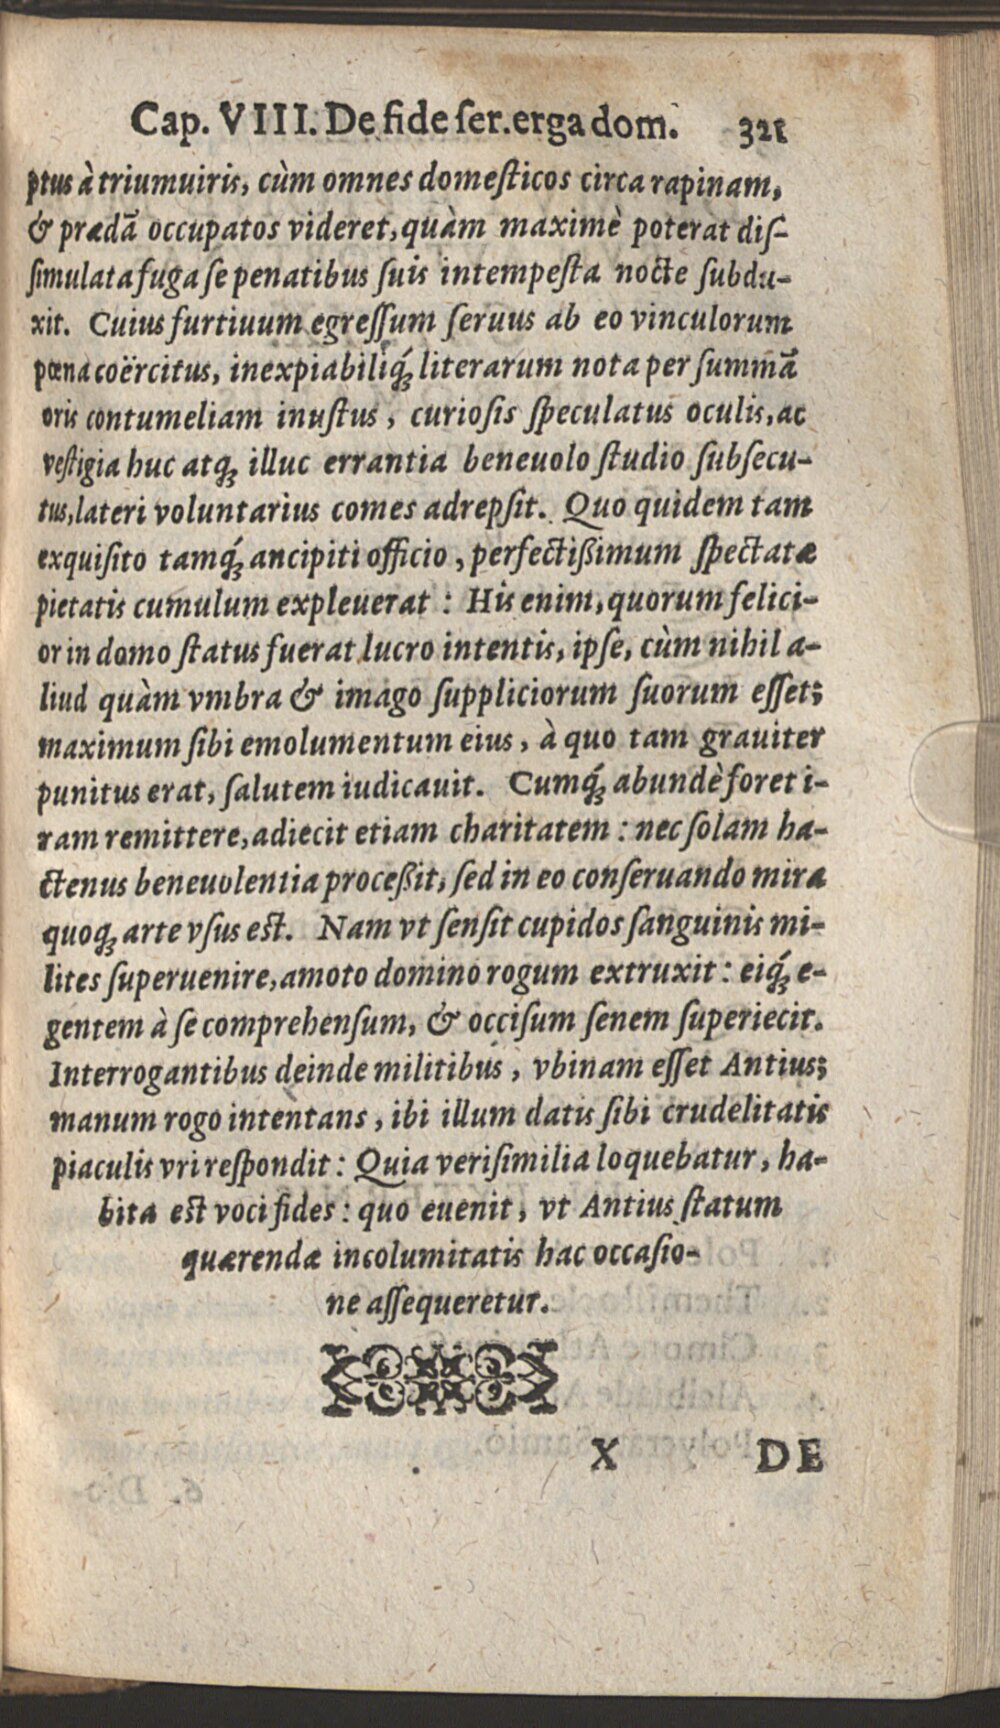 Cap. VIII. De fide ſer. erga dom. 321
ptus à triumuiris, cùm omnes domeſticos circa rapinam,
& prædã occupatos videret, quàm maximè poterat diſ-
ſimulata fuga ſe penatibus ſuis intempeſta nocte ſubdu-
xit. Cuius furtiuum egreſſum ſeruus ab eo vinculorum
pœna coërcitus, inexpiabiliq́; literarum nota per ſummã
oris contumeliam inuſtus, curioſis ſpeculatus oculis, ac
veſtigia huc atq; illuc errantia beneuolo ſtudio ſubſecu-
tus, lateri voluntarius comes adrepſit. Quo quidem tam
exquiſito tamq́; ancipiti officio, perfectißimum ſpectatæ
pietatis cumulum expleuerat: His enim, quorum felici-
or in domo ſtatus fuerat lucro intentis, ipſe, cùm nihil a-
liud quàm vmbra & imago ſuppliciorum ſuorum eſſet;
maximum ſibi emolumentum eius, à quo tam grauiter
punitus erat, ſalutem iudicauit. Cumq́; abundè foret i-
ram remittere, adiecit etiam charitatem: nec ſolam ha-
ctenus beneuolentia proceßit, ſed in eo conſeruando mira
quoq; arte vſus est. Nam vt ſenſit cupidos ſanguinis mi-
lites ſuperuenire, amoto domino rogum extruxit: eiq́; e-
gentem à ſe comprehenſum, & occiſum ſenem ſuperiecit.
Interrogantibus deinde militibus, vbinam eſſet Antius;
manum rogo intentans, ibi illum datis ſibi crudelitatis
piaculis vri reſpondit: Quia veriſimilia loquebatur, ha-
bita est voci fides: quo euenit, vt Antius ſtatum
quærendæ incolumitatis hac occaſio-
ne aſſequeretur.
X DE